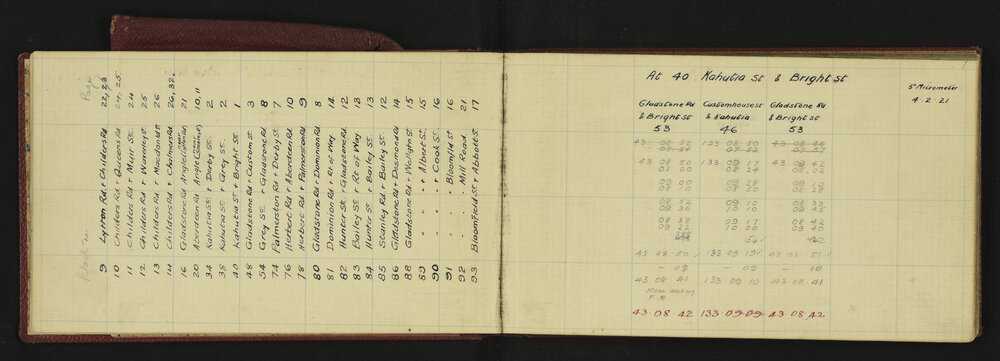 Page
9 Lytton Rd. + Childers Rd. 22, 23
10 Childers Rd + Queens Rd. 24, 25
11 Childers Rd + Muir St. 24
12 Childers Rd + Wainlley St. 25
13 Childers Rd + Macdonald St. 26
14 Childers Rd + Chalmers Rd. 26, 32.
16 Gladstone Rd Angle 21
20 Aberdeen Rd Angle 10, 11
34 Kahutia St. + Derby St. 2
38 Kahutia St. + Grey St. 2
40 Kahutia St + Bright St. 1
48 Gladstone Rd + Custom St. 3
54 Grey St. + Gladstone Rd 8
74 Palmerston Rd + Derby St. 7
76 Herbert Rd + Aberdeen Rd. 10
78 Herbert Rd. + Palmerston Rd. 9
80 Gladstone Rd + Dominion Rd. 8
81 Dominion Rd + Rt of Way 14
82 Hunter St + Gladstone Rd. 12
83 Bailey St. + Rt of Way 13
84 Hunter St. + Bailey St. 13
85 Stanley Rd + Bailey St. 12
86 Gladstone Rd + Desmond Rd. 14
88 Gladstone Rd + Weilght St. 15
89 " " + Albert St. 15
90 " " + Cook St. 16
91 " " Bloomfld St. 16
92 " " Mill Road 21
93 Bloomfield St + Abbott St. 17
1
At 40 Kahutia St & Bright St
5" Micrometer
4-2-21
Gladstone Rd Customhouse St Gladstone Rd
& Bright St & Kahutia & Bright St
53 46 53
43 08 52 133 08 50 43 08 40
07 44 07 52 07 57
43 08 50 133 09 17 43 09 42
08 00 08 24 08 02
09 00 09 28 09 10
08 50 08 58 08 28
08 52 09 10 08 33
09 36 10 10 09 45
08 38 09 17 08 42
09 22 10 00 09 40
43 08 50 133-09-19 43-08-51
- 09 - 09 - 10
43 08 41 133-09-10 43-08-41
Mean
F.B.
43-08-42 133-09-09 43-08-42